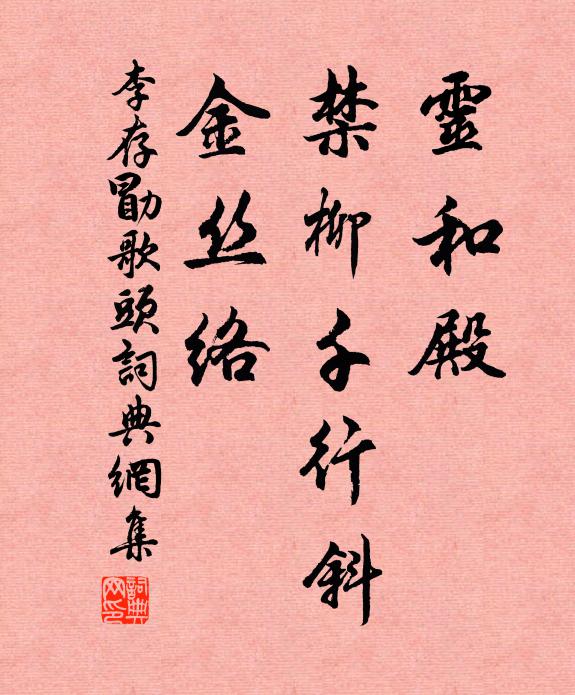 靈和殿
禁柳千行斜
金丝絡
李存勖歌頭詞典網集
詞典
网印